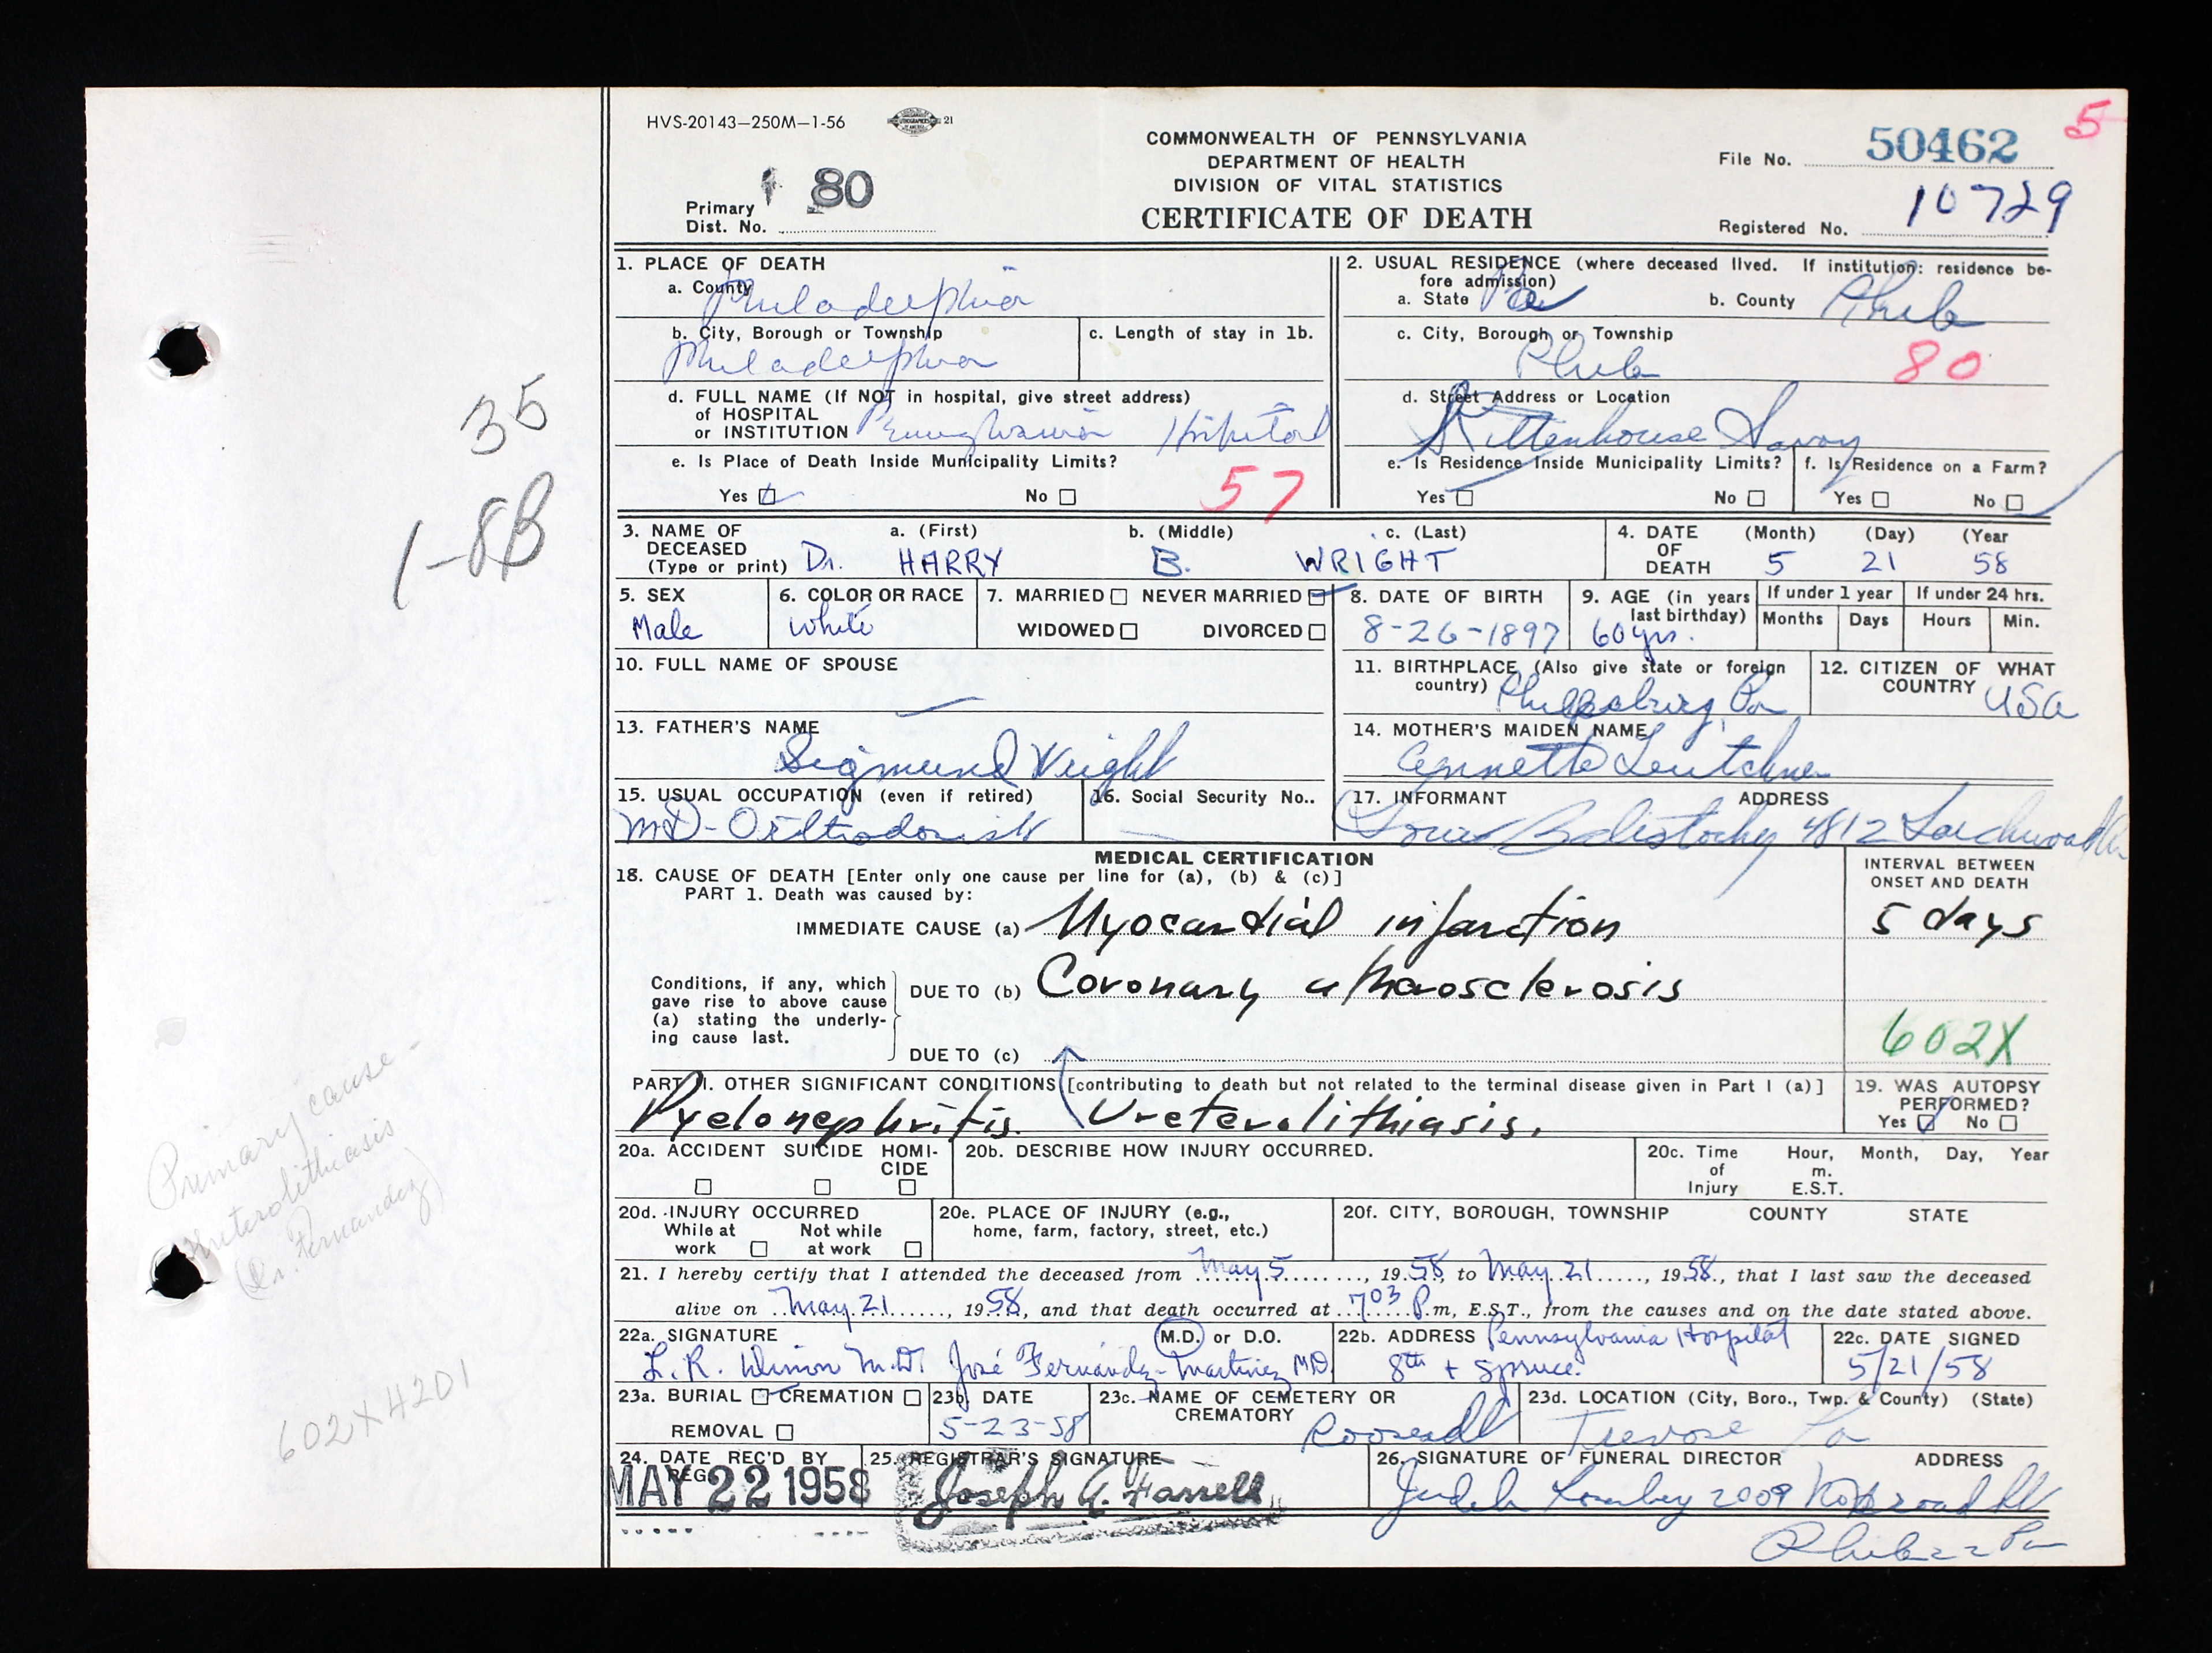 HVS-20143—250M—1-56
21
5
COMMONWEALTH OF PENNSYLVANIA
DEPARTMENT OF HEALTH
DIVISION OF VITAL STATISTICS
CERTIFICATE OF DEATH
File No. 50462
Primary Dist. No. 80
Registered No. 10729
35
1-8B
1. PLACE OF DEATH
a. County Philadelphia
b. City, Borough or Township Philadelphia
c. Length of stay in 1b.
d. FULL NAME (If NOT in hospital, give street address)
of HOSPITAL
or INSTITUTION Pennsylvania Hospital
e. Is Place of Death Inside Municipality Limits?
Yes No
57
2. USUAL RESIDENCE (where deceased lived. If institution: residence be-
fore admission)
a. State Pa b. County Phila
c. City, Borough or Township
Phila 80
d. Street Address or Location
Rittenhouse Savoy
e. Is Residence Inside Municipality Limits?
Yes No
f. Is Residence on a Farm?
Yes No
3. NAME OF DECEASED (Type or print)
a. (First) b. (Middle) c. (Last)
Dr. HARRY B. WRIGHT
4. DATE OF DEATH
(Month) (Day) (Year
5 21 58
5. SEX
Male
6. COLOR OR RACE
White
7. MARRIED NEVER MARRIED
WIDOWED DIVORCED
8. DATE OF BIRTH
8-26-1897
9. AGE (in years last birthday)
60 yrs.
If under 1 year
Months Days
If under 24 hrs.
Hours Min.
10. FULL NAME OF SPOUSE
11. BIRTHPLACE (Also give state or foreign
country) Pa
12. CITIZEN OF WHAT
COUNTRY USA
13. FATHER'S NAME
Sigmund Wright
14. MOTHER'S MAIDEN NAME
Annette
15. USUAL OCCUPATION (even if retired)
MD-Orthodonist
16. Social Security No..
17. INFORMANT ADDRESS
4812 Larchwood
MEDICAL CERTIFICATION
18. CAUSE OF DEATH [Enter only one cause per line for (a), (b) & (c)]
PART 1. Death was caused by:
INTERVAL BETWEEN
ONSET AND DEATH
IMMEDIATE CAUSE (a) Myocardial infarction
5 days
Conditions, if any, which
gave rise to above cause
(a) stating the underly-
ing cause last.
DUE TO (b) Coronary atherosclerosis
DUE TO (c)
602X
PART II. OTHER SIGNIFICANT CONDITIONS [contributing to death but not related to the terminal disease given in Part I (a)]
Pyelonephritis. Ureterolithiasis.
19. WAS AUTOPSY
PERFORMED?
Yes No
20a. ACCIDENT SUICIDE HOMI-
CIDE
20b. DESCRIBE HOW INJURY OCCURRED.
20c. Time of Injury
Hour, Month, Day, Year
m.
E.S.T.
20d. INJURY OCCURRED
While at work
Not while at work
20e. PLACE OF INJURY (e.g.,
home, farm, factory, street, etc.)
20f. CITY, BOROUGH, TOWNSHIP COUNTY STATE
21. I hereby certify that I attended the deceased from May 5, 1958, to May 21, 1958, that I last saw the deceased
alive on May 21, 1958, and that death occurred at 7 03 P.m, E.S.T., from the causes and on the date stated above.
22a. SIGNATURE (M.D. or D.O.
L. R. M.D. José Fernández-Martinez MD
22b. ADDRESS Pennsylvania Hospital
8th + Spruce.
22c. DATE SIGNED
5/21/58
23a. BURIAL CREMATION
REMOVAL
23b. DATE
5-23-58
23c. NAME OF CEMETERY OR
CREMATORY Roosevelt
23d. LOCATION (City, Boro., Twp. & County) (State)
Trevose Pa
24. DATE REC'D BY
REG.
MAY 22 1958
25. REGISTRAR'S SIGNATURE
Joseph A. Farrell
26. SIGNATURE OF FUNERAL DIRECTOR ADDRESS
2009 No Broad St
Phila 22 Pa
Primary cause -
Ureterolithiasis
(Dr. Fernandez)
602X4201